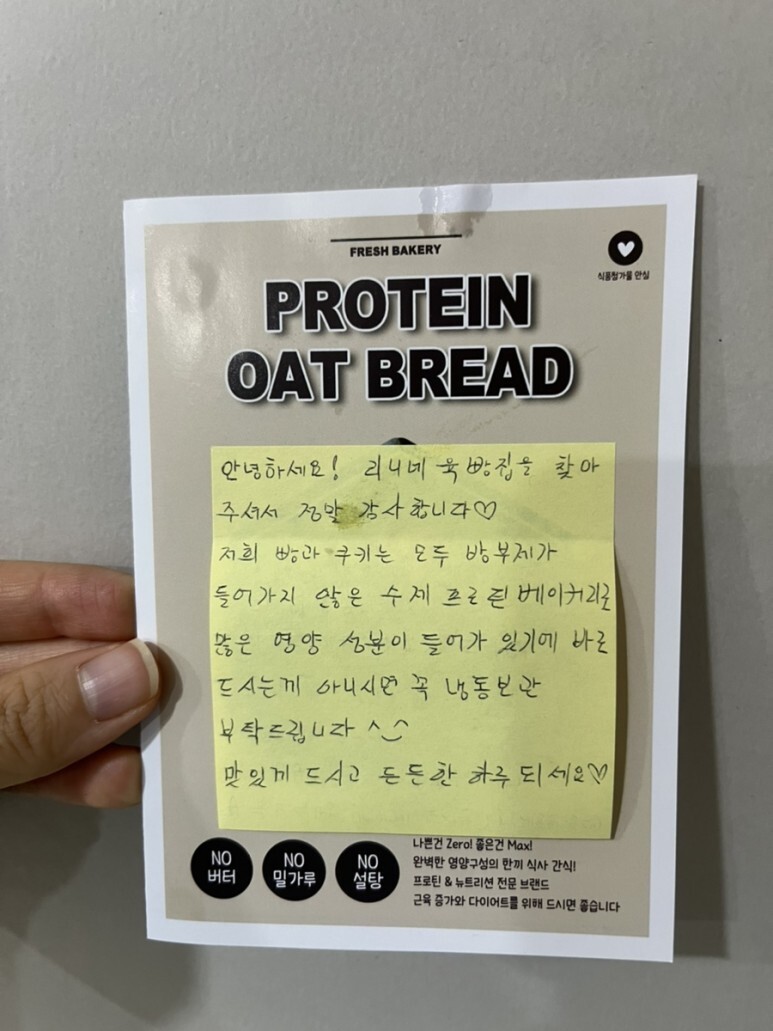 FRESH BAKERY
식품첨가물 안심
PROTEIN
OAT BREAD
안녕하세요! 리니네 욱빵집을 찾아
주셔서 정말 감사합니다♡
저희 빵과 쿠키는 모두 방부제가
들어가지 않은 수제 프로틴베이커리로
많은 영양 성분이 들어가 있기에 바로
드시는게 아니시면 꼭 냉동보관
부탁드립니다 ^‿^
맛있게 드시고 든든한 하루 되세요♡
NO
버터
NO
밀가루
NO
설탕
나쁜건 Zero! 좋은건 Max!
완벽한 영양구성의 한끼 식사 간식!
프로틴 & 뉴트리션 전문 브랜드
근육 증가와 다이어트를 위해 드시면 좋습니다